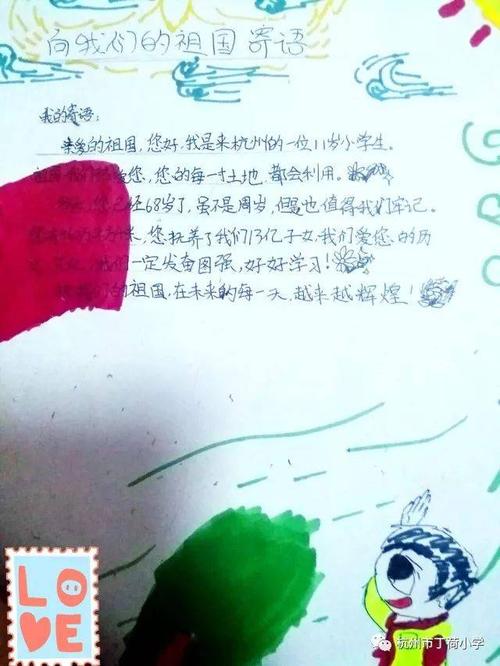 向我们的祖国寄语
我的寄语:
亲爱的祖国,您好,我是来杭州的一位11岁小学生。
祖国我们爱您,您的每一寸土地,都会利用。
您已经68岁了,虽不是周岁,但是也值得我们牢记。
您抚养了我们13亿子女,我们爱您的历
我们一定发奋图强,好好学习!
我们的祖国,在未来的每一天,越来越辉煌!
LOVE
杭州市丁荷小学